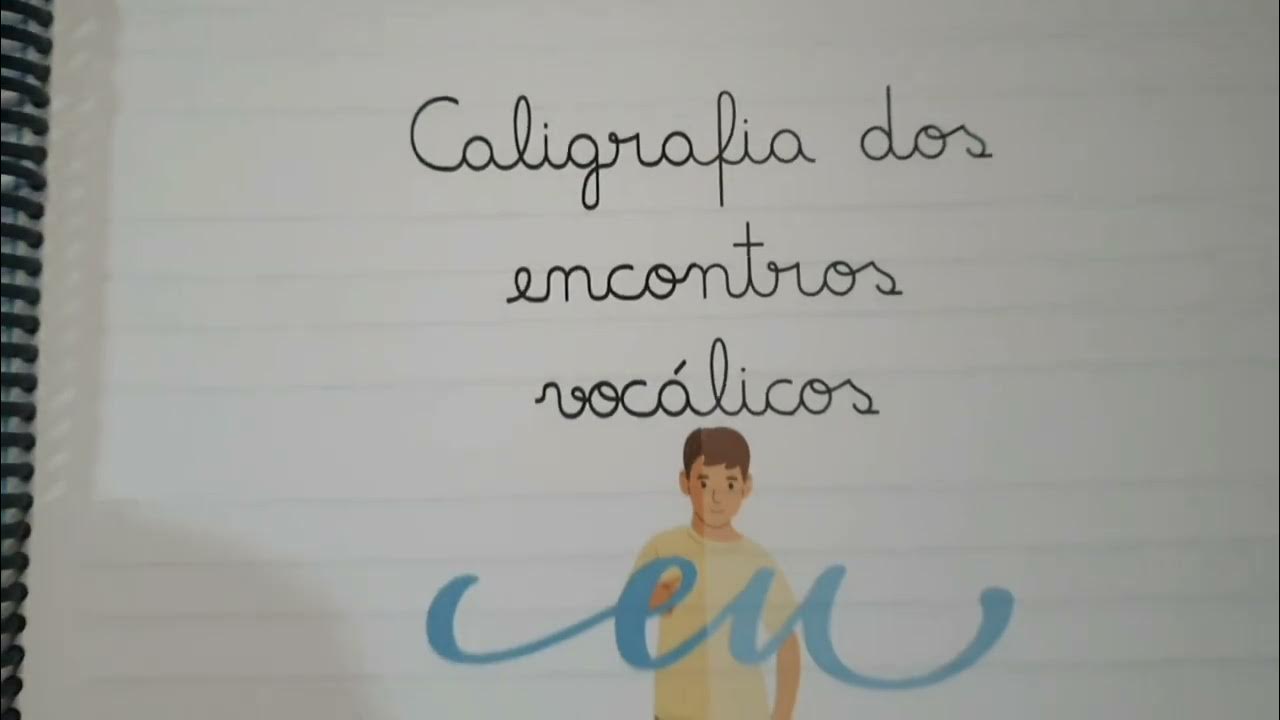 Caligrafia dos
encontros
vocálicos
eu